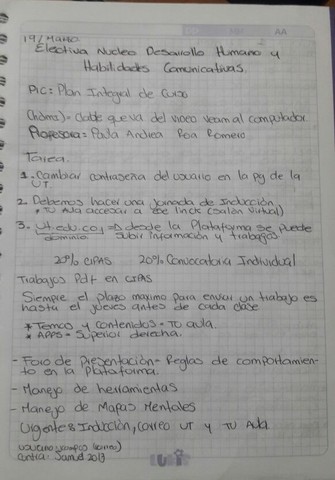 19/Marzo
AA
Electiva Nucleo Desarrollo Humano y
Habilidades Comunicativas.
PIC = Plan Integral de Curso
(hdmi) - Cable que va del video veam al computador
Profesora = Paola Andrea Roa Romero
Tarea.
1. Cambiar contraseña del usuario en la pg de la
UT.
2. Debemos hacer una jornada de Inducción
* TU Aula accesar a ese linck (salón virtual)
3. ut.edu.co, => desde la Plataforma se puede
dominio subir información y trabajos.
20% CIPAS 20% Convocatoria Individual
Trabajos Pdf en CIPAS
Siempre el plazo maximo para enviar un trabajo es
hasta el jueves antes de cada clase
* Temas y contenidos = TU aula.
* APPS = Superior derecha.
- Foro de Presentación = Reglas de comportamien-
to en la Plataforma.
- Manejo de herramientas
- Manejo de Mapas Mentales
Urgentes Inducción, correo UT y TU Aula
contra: Samuel 2013